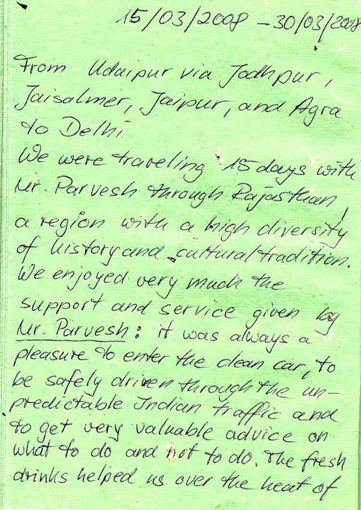 15/03/2008 - 30/03/2008
From Udaipur via Jodhpur,
Jaisalmer, Jaipur, and Agra
to Delhi
We were traveling 15 days with
Mr. Parvesh through Rajasthan,
a region with a high diversity
of history and cultural tradition.
We enjoyed very much the
support and service given by
Mr. Parvesh: it was always a
pleasure to enter the clean car, to
be safely driven through the un-
predictable Indian traffic and
to get very valuable advice on
what to do and not to do. The fresh
drinks helped us over the heat of